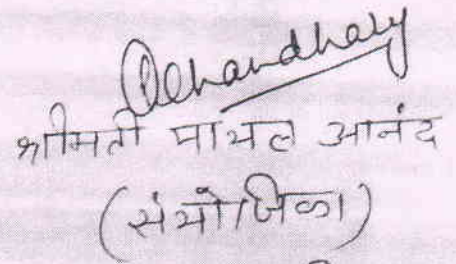 PChaudhary
श्रीमती पायल आनंद
(संयोजिका)